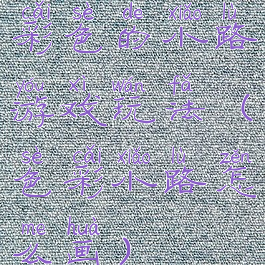 cǎi sè de xiǎo lù
彩色的小路
yóu xì wán fǎ
游戏玩法(
sè cǎi xiǎo lù zěn
色彩小路怎
me huà
么画)